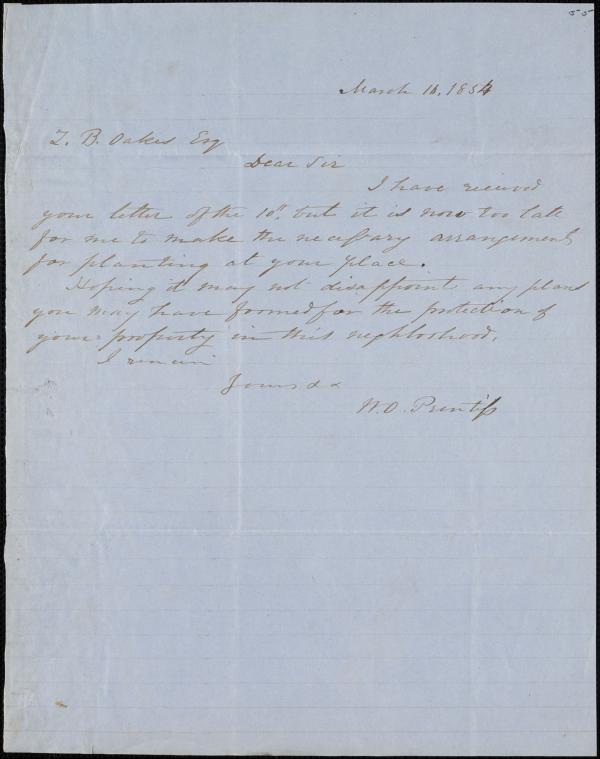 55
March 16, 1854
Z. B. Oakes Esq
Dear Sir
I have received
your letter of the 10th. but it is now too late
for me to make the necessary arrangements
for planting at your place.
Hoping it may not disappoint any plans
you may have formed for the protection of
your property in this neighborhood,
I remain
Yours &&
W. O. Prentiss